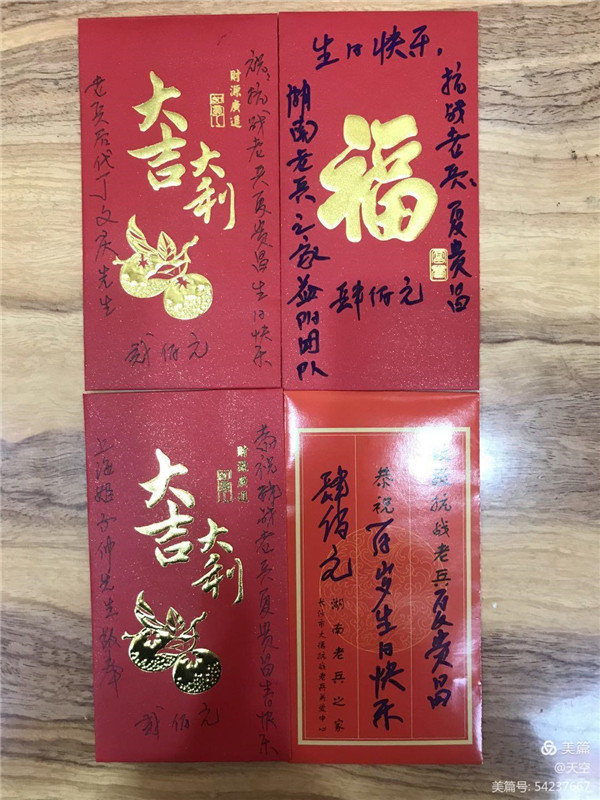 祝抗战老兵夏贵昌生日快乐
财源廣進
大吉
大利
老兵后代丁文庆先生
贰佰元
生日快乐,
抗战老兵夏贵昌
福
湖南老兵之家益阳团队
肆佰元
恭祝抗战老兵夏贵昌生日快乐
财源廣進
大吉
大利
上海
先生敬奉
贰佰元
抗战老兵夏贵昌
恭祝百岁生日快乐
肆佰元
湖南老兵之家
长沙市
老兵关爱中心
美篇
@天空
美篇号: 54237667